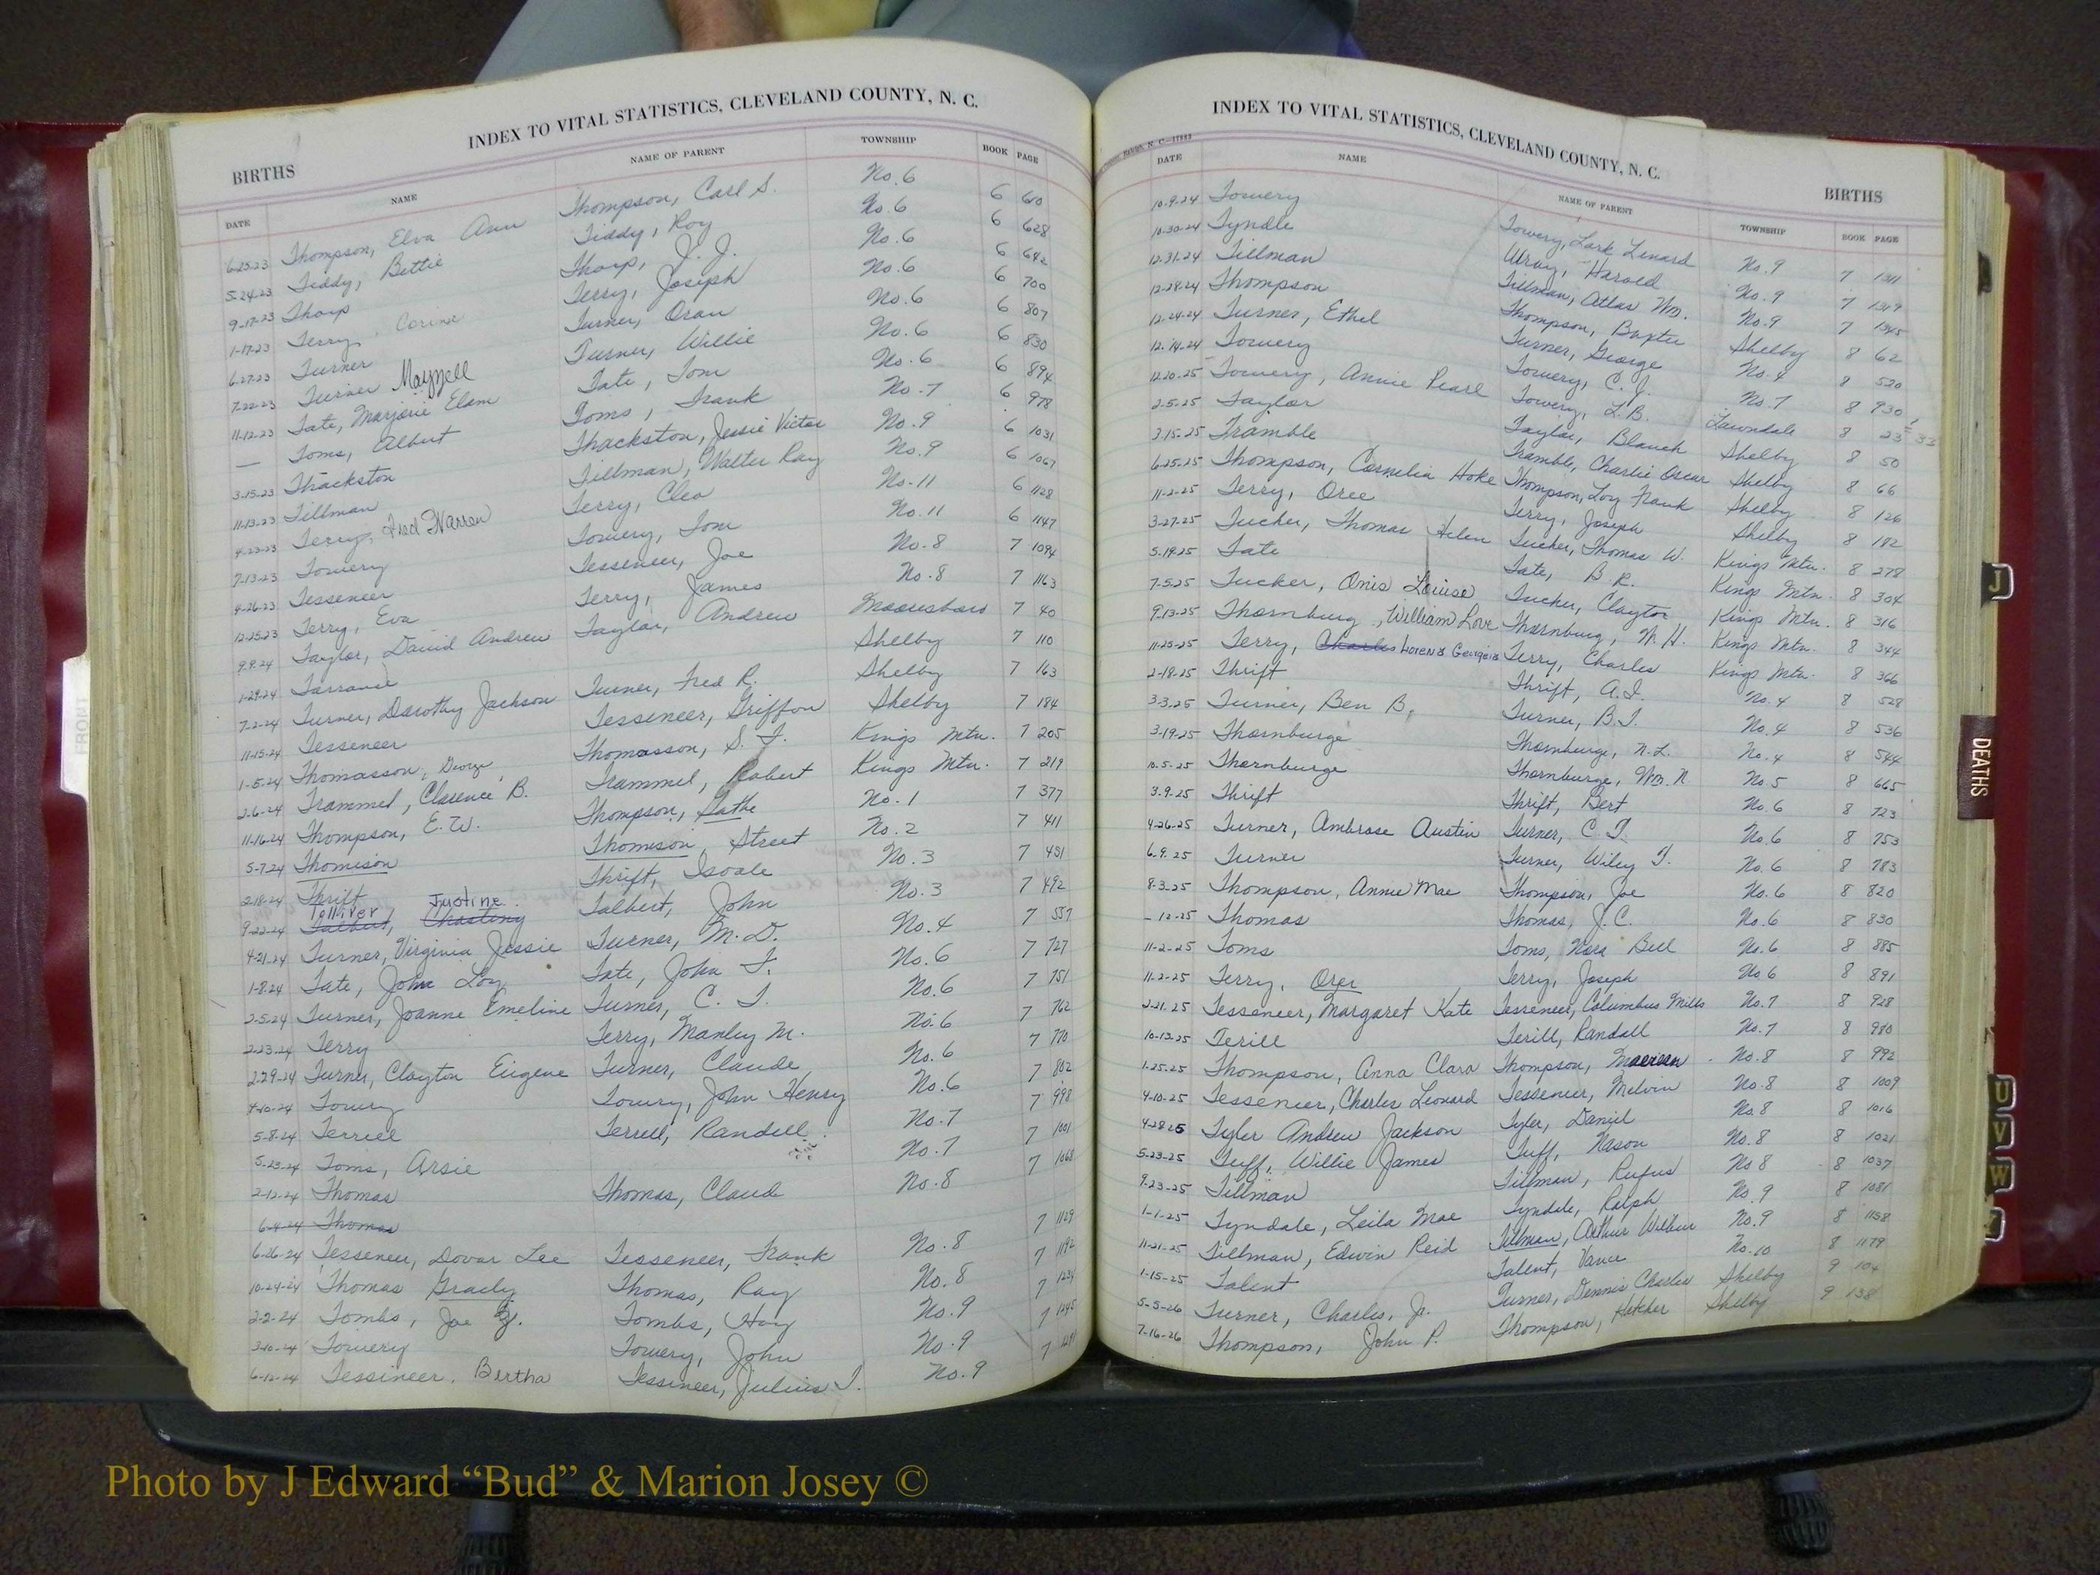 INDEX TO VITAL STATISTICS, CLEVELAND COUNTY, N. C.
BIRTHS
DATE NAME NAME OF PARENT TOWNSHIP BOOK PAGE
6-25-23 Thompson, Elva Ann Thompson, Carl S. No. 6 6 610
5-24-23 Tiddy, Bettie Tiddy, Roy No. 6 6 628
9-17-23 Tharp Tharp, J. J. No. 6 6 642
1-17-23 Terry, Corine Terry, Joseph No. 6 6 700
6-27-23 Turner Turner, Oran No. 6 6 807
7-22-23 Turner Mayzell Turner, Willie No. 6 6 830
11-12-23 Tate, Marjorie Elam Tate, Tom No. 6 6 894
— Toms, Albert Toms, Frank No. 7 6 978
3-15-23 Thackston Thackston, Jessie Victor No. 9 6 1031
11-13-23 Tillman Tillman, Walter Ray No. 9 6 1067
4-23-23 Terry, Fred Warren Terry, Cleo No. 11 6 1128
7-13-23 Towery Towery, Tom No. 11 6 1147
4-26-23 Tesseneer Tesseneer, Joe No. 8 7 1094
12-25-23 Terry, Eva Terry, James No. 8 7 1163
9-9-24 Taylor, David Andrew Taylor, Andrew Mooresboro 7 40
1-29-24 Tarrance Shelby 7 110
7-2-24 Turner, Dorothy Jackson Turner, Fred R. Shelby 7 163
11-15-24 Tesseneer Tesseneer, Griffon Shelby 7 184
1-5-24 Thomasson, George Thomasson, S. F. Kings Mtn. 7 205
2-6-24 Trammel, Clarence B. Trammel, Robert Kings Mtn. 7 219
11-16-24 Thompson, E. W. Thompson, No. 1 7 377
5-7-24 Thomison Thomison, Street No. 2 7 411
2-18-24 Thrift Thrift, No. 3 7 451
Tolliver Justine.
9-22-24 Talbert, Chasting Talbert, John No. 3 7 492
4-21-24 Turner, Virginia Jessie Turner, M. D. No. 4 7 557
1-8-24 Tate, John Loy Tate, John F. No. 6 7 727
2-5-24 Turner, Joanne Emeline Turner, C. T. No. 6 7 751
2-23-24 Terry Terry, Manley M. No. 6 7 762
2-29-24 Turner, Clayton Eugene Turner, Claude No. 6 7 770
4-10-24 Towry Towry, John Henry No. 6 7 802
5-8-24 Terrell Terrell, Randell No. 7 7 998
5-23-24 Toms, Arsie No. 7 7 1001
2-12-24 Thomas Thomas, Claude No. 8 7 1068
6-4-24 Thomas
6-26-24 Tesseneer, Dovar Lee Tesseneer, Frank No. 8 7 1129
10-24-24 Thomas Grady Thomas, Ray No. 8 7 1192
2-2-24 Tombs, Joe Tombs, Hoy No. 9 7 1234
3-10-24 Towery Towery, John No. 9 7 1245
6-12-24 Tessineer, Bertha Tessineer, Julius T. No. 9 7
INDEX TO VITAL STATISTICS, CLEVELAND COUNTY, N. C.
BIRTHS
DATE NAME NAME OF PARENT TOWNSHIP BOOK PAGE
10-9-24 Towery Towery, Lark Lenard No. 9 7 1311
10-30-24 Tyndle Wray, Harold No. 9 7 1319
12-31-24 Tillman Tillman, Atlas Wm. No. 9 7 1345
12-28-24 Thompson Thompson, Baxter Shelby 8 62
12-24-24 Turner, Ethel Turner, George No. 4 8 520
12-14-24 Towery Towery, C. J. No. 7 8 930
12-20-25 Towery, Annie Pearl Towery, L. B. Lawndale 8 23 33
2-5-25 Taylor Taylor, Blanch Shelby 8 50
3-15-25 Tramble Tramble, Charlie Oscar Shelby 8 66
6-25-25 Thompson, Cornelia Hoke Thompson, Loy Frank Shelby 8 126
11-2-25 Terry, Oree Terry, Joseph Shelby 8 182
3-27-25 Tucker, Thomas Helen Tucker, Thomas W. Kings Mtn. 8 278
5-19-25 Tate Tate, B. R. Kings Mtn. 8 304
7-5-25 Tucker, Onis Louise Tucker, Clayton Kings Mtn. 8 316
9-13-25 Thornburg, William Love Thornburg, M. H. Kings Mtn. 8 344
11-25-25 Terry, Charles Horens Georgeis Terry, Charles Kings Mtn. 8 366
2-18-25 Thrift Thrift, A. I. No. 4 8 528
3-3-25 Turner, Ben B. Turner, B. T. No. 4 8 536
3-19-25 Thornburge Thornburge, N. L. No. 4 8 544
10-5-25 Thornburge Thornburge, Wm. N No. 5 8 665
3-9-25 Thrift Thrift, Bert No. 6 8 723
4-26-25 Turner, Ambrose Austin Turner, C. T. No. 6 8 753
6-9-25 Turner Turner, Wiley T. No. 6 8 783
8-3-25 Thompson, Annie Mae Thompson, Joe No. 6 8 820
-12-25 Thomas Thomas, J. C. No. 6 8 830
11-2-25 Toms Toms, Nora Bell No. 6 8 885
11-2-25 Terry, Orer Terry, Joseph No 6 8 891
2-21-25 Tesseneer, Margaret Kate Tesseneer, Columbus Mills No. 7 8 928
10-13-25 Terill Terill, Randall No. 7 8 980
1-25-25 Thompson, Anna Clara Thompson, No. 8 8 992
4-10-25 Tesseneer, Charles Leonard Tesseneer, Melvin No. 8 8 1009
4-28-25 Tyler Andrew Jackson Tyler, Daniel No. 8 8 1016
5-23-25 Tuff, Willie James Tuff, Nason No. 8 8 1021
9-23-25 Tillman Tillman, Rufus No 8 8 1037
1-1-25 Tyndale, Leila Mae Tyndale, Ralph No. 9 8 1081
11-21-25 Tillman, Edwin Reid Tillman, Arthur Wilbur No. 9 8 1158
1-15-25 Talent Talent, Vance No. 10 8 1179
5-5-26 Turner, Charles, Jr. Turner, Dennis Charles Shelby 9 104
7-16-26 Thompson, John P. Thompson, Hatcher Shelby 9 138
FRONT
J
DEATHS
U
V
W
Photo by J Edward “Bud” & Marion Josey ©